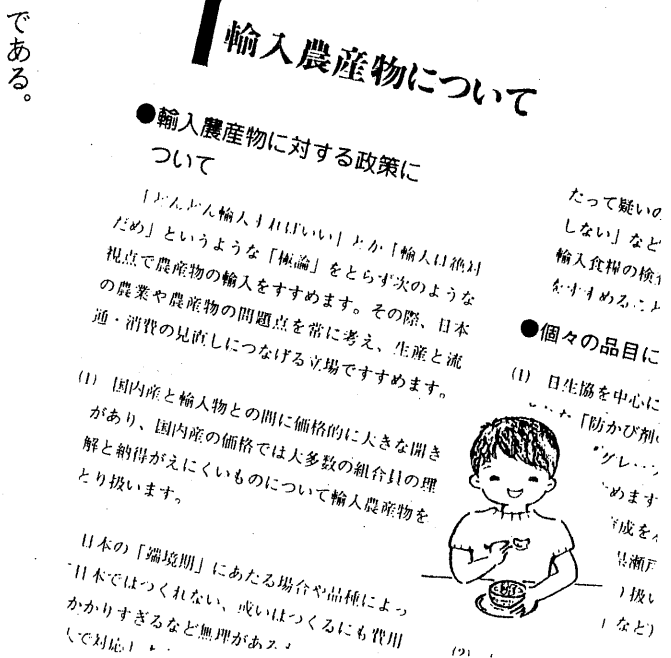 である。
輸入農産物について
●輸入農産物に対する政策に
ついて
「どんどん輸入すればいい」とか「輸入は絶対
だめ」というような「極論」をとらず次のような
視点で農産物の輸入をすすめます。その際、日本
の農業や農産物の問題点を常に考え、生産と流
通・消費の見直しにつなげる立場ですすめます。
(1) 国内産と輸入物との間に価格的に大きな開き
があり、国内産の価格では大多数の組合員の理
解と納得がえにくいものについて輸入農産物を
とり扱います。
日本の「端境期」にあたる場合や品種によっ
日本ではつくれない、或いはつくるにも費用
かかりすぎるなど無理がある
で対応し
たって疑いの
しない」など
輸入食糧の検査
をすすめること
●個々の品目に
(1) 日生協を中心に
「防かび剤
グレ
めます
育成を
瀬戸
扱い
など)
(2)